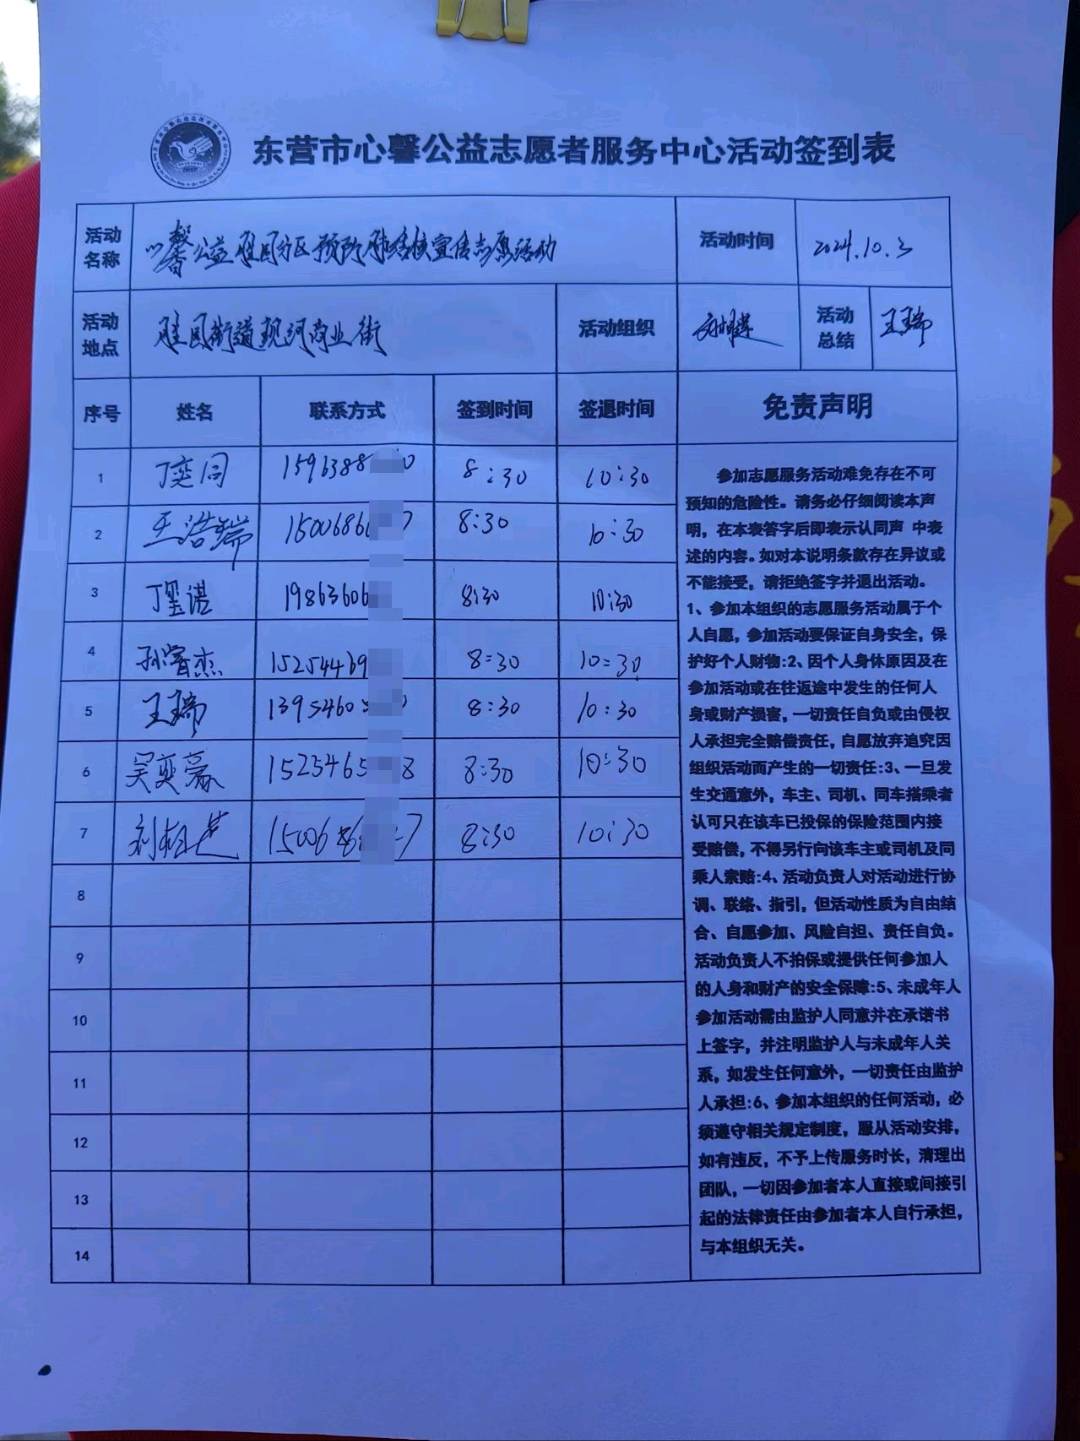 东营市心馨公益志愿者服务中心活动签到表
活动名称 心馨公益胜园分区预防肺结核宣传志愿活动 活动时间 2024.10.3
活动地点 胜园街道现河商业街 活动组织 活动总结 王瑞
序号 姓名 联系方式 签到时间 签退时间 免责声明
1 丁奕同 1596388 0 8:30 10:30
2 王浩瑞 1500686 7 8:30 10:30
3 丁玺湛 19863606 8:30 10:30
4 孙睿杰 15254439 8:30 10:30
5 王瑞 1395460 8:30 10:30
6 吴奕豪 1525465 8 8:30 10:30
7 刘相芝 1500686 7 8:30 10:30
8
9
10
11
12
13
14
参加志愿服务活动难免存在不可
预知的危险性。请务必仔细阅读本声
明，在本表签字后即表示认同声 中表
述的内容。如对本说明条款存在异议或
不能接受，请拒绝签字并退出活动。
1、参加本组织的志愿服务活动属于个
人自愿，参加活动要保证自身安全，保
护好个人财物:2、因个人身休原因及在
参加活动或在往返途中发生的任何人
身或财产损害，一切责任自负或由侵权
人承担完全赔偿责任，自愿放弃追究因
组织活动而产生的一切责任:3、一旦发
生交通意外，车主、司机、同车搭乘者
认可只在该车已投保的保险范围内接
受赔偿，不得另行向该车主或司机及同
乘人索赔:4、活动负责人对活动进行协
调、联络、指引，但活动性质为自由结
合、自愿参加、风险自担、责任自负。
活动负责人不拍保或提供任何参加人
的人身和财产的安全保障:5、未成年人
参加活动需由监护人同意并在承诺书
上签字，并注明监护人与未成年人关
系，如发生任何意外，一切责任由监护
人承担:6、参加本组织的任何活动，必
须遵守相关规定制度，服从活动安排，
如有违反，不予上传服务时长，清理出
团队，一切因参加者本人直接或间接引
起的法律责任由参加者本人自行承担，
与本组织无关。